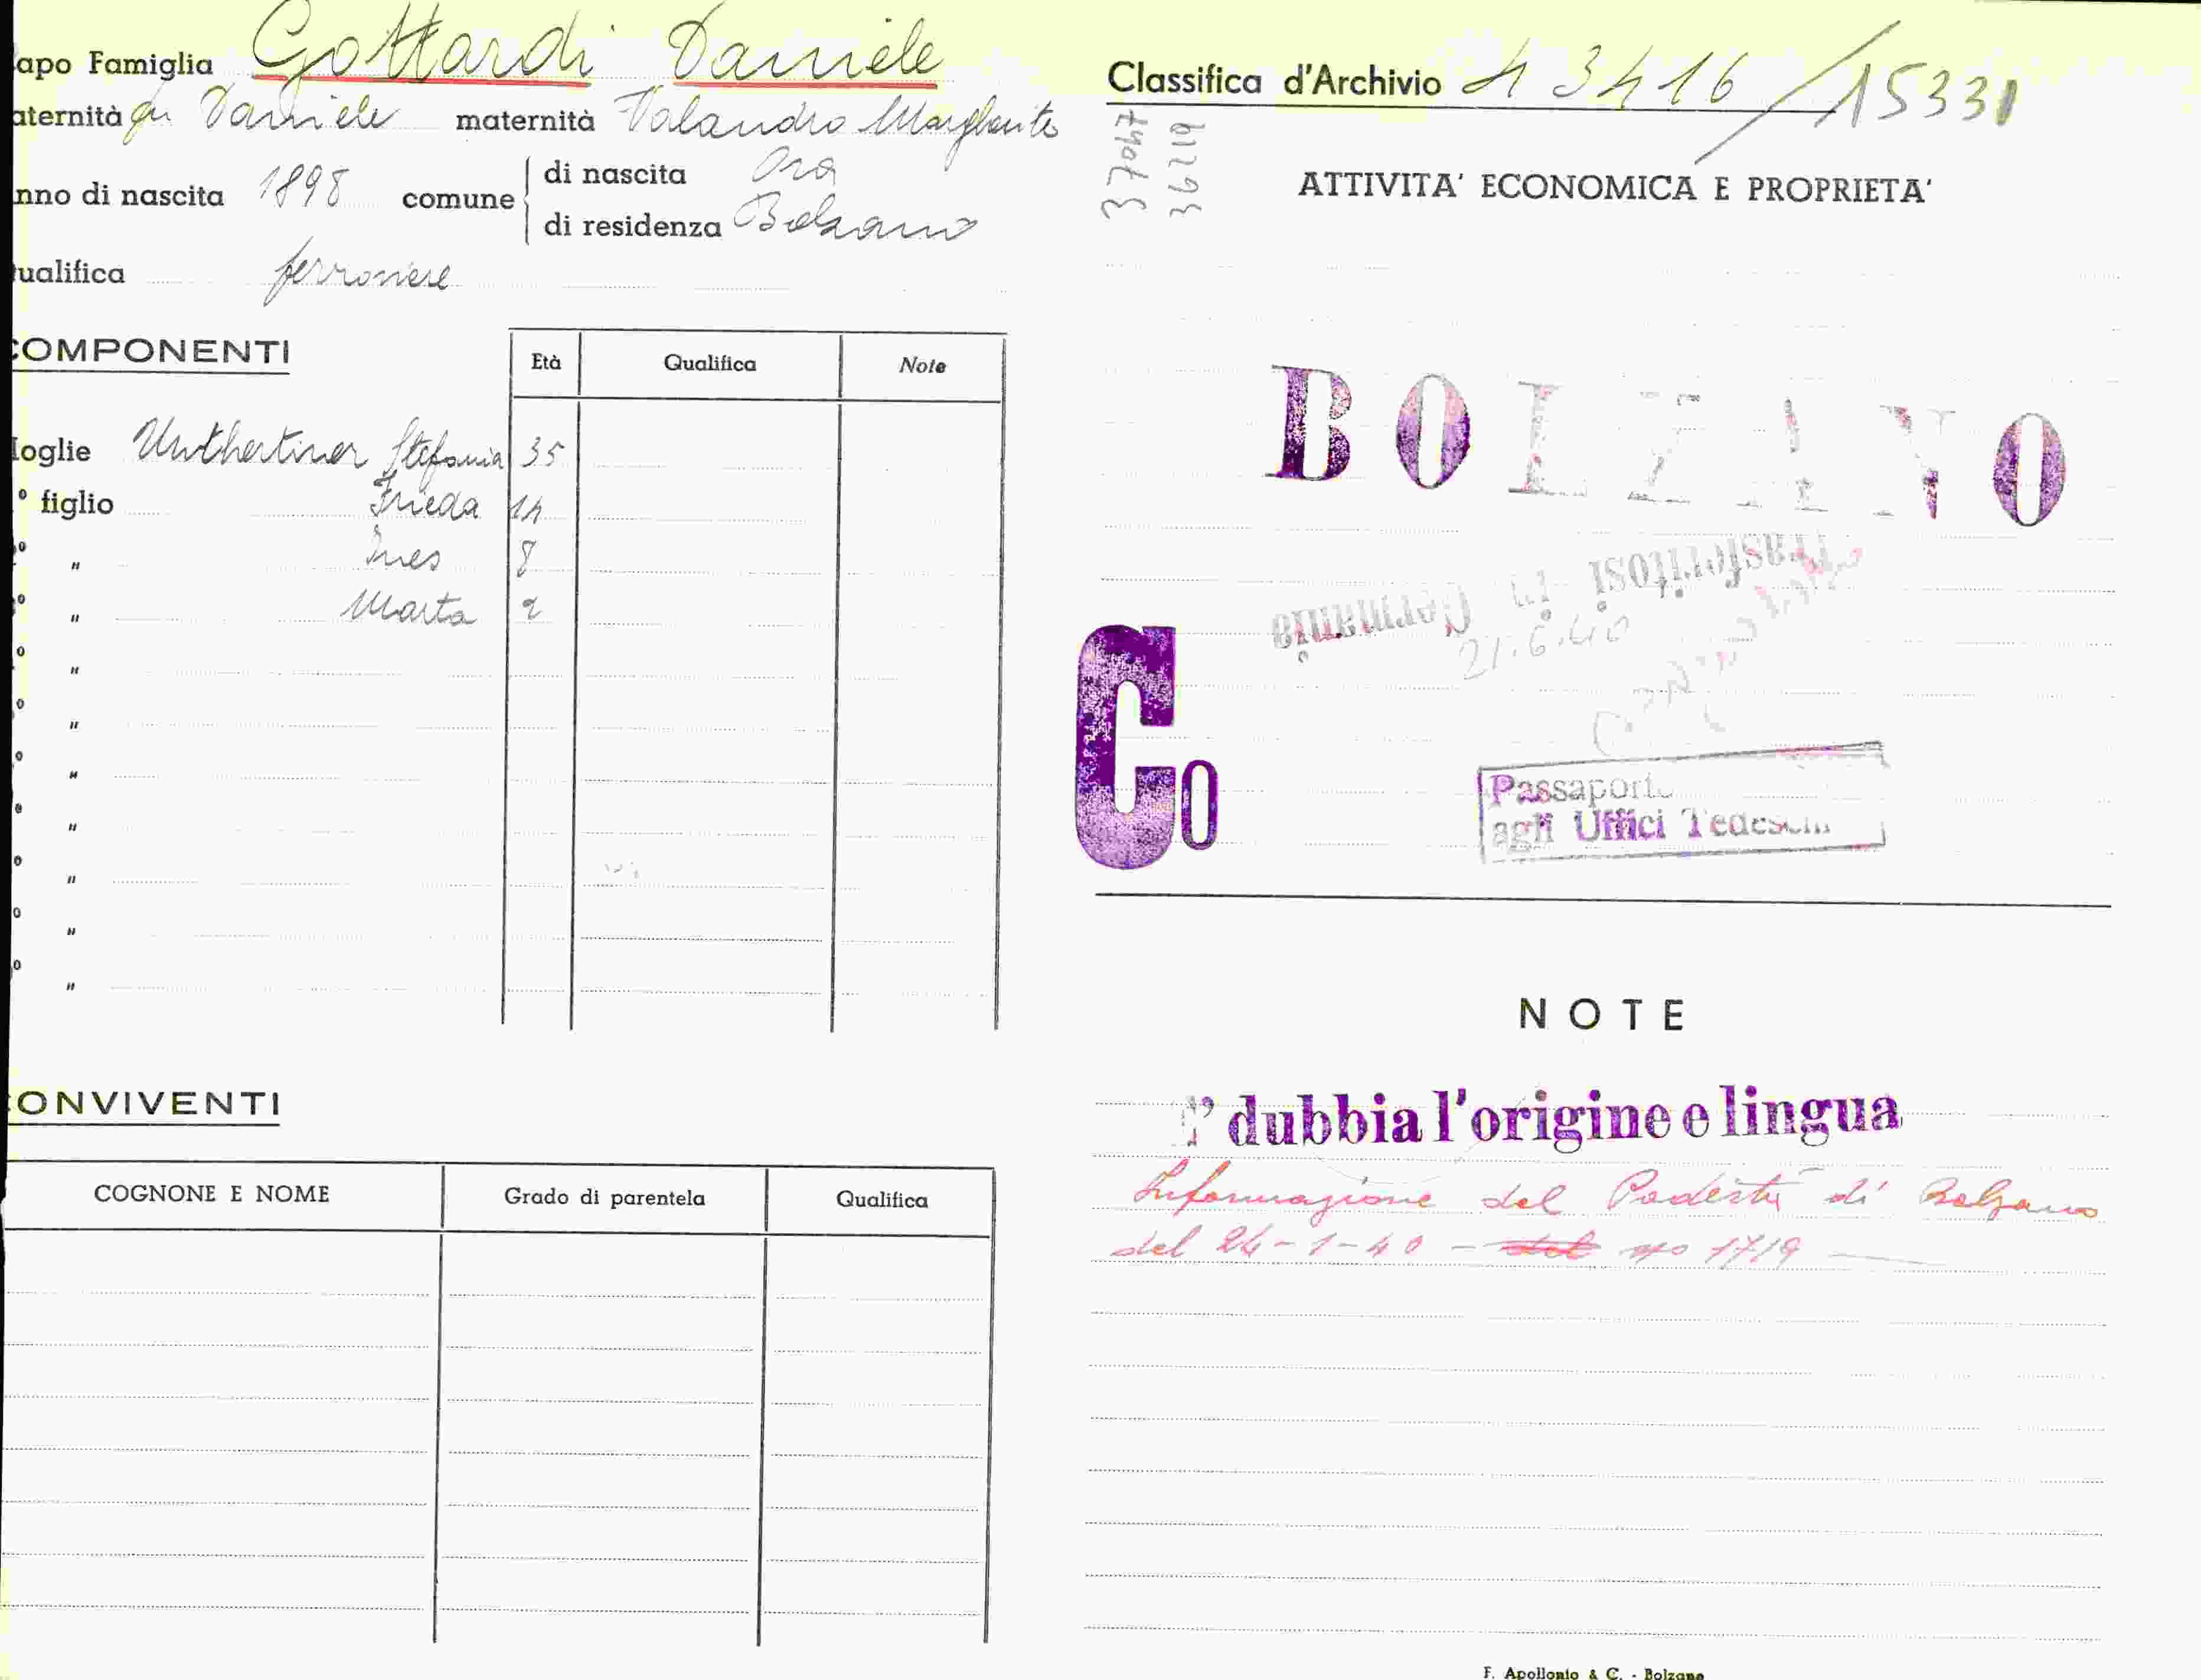 apo Famiglia Gottardi Daniele
aternità fu Daniele maternità Valandro Margherita
nno di nascita 1898 comune di nascita Ora
di residenza Bolzano
ualifica ferroviere
COMPONENTI
Età Qualifica Note
Moglie Unthertiner Stefania 35
° figlio Frieda 14
° " Ines 8
° " Marta 2
° "
° "
° "
° "
° "
° "
° "
CONVIVENTI
COGNONE E NOME Grado di parentela Qualifica
Classifica d'Archivio 43416/15331
37047
36219
ATTIVITA' ECONOMICA E PROPRIETA'
BOLZANO
Trasferitosi in Germania
21.6.40
Co
Passaporto
agli Uffici Tedeschi
NOTE
E' dubbia l'origine e lingua
Informazione del Podestà di Bolzano
del 24-1-40 - del no 1719
F. Apollonio & C. - Bolzano